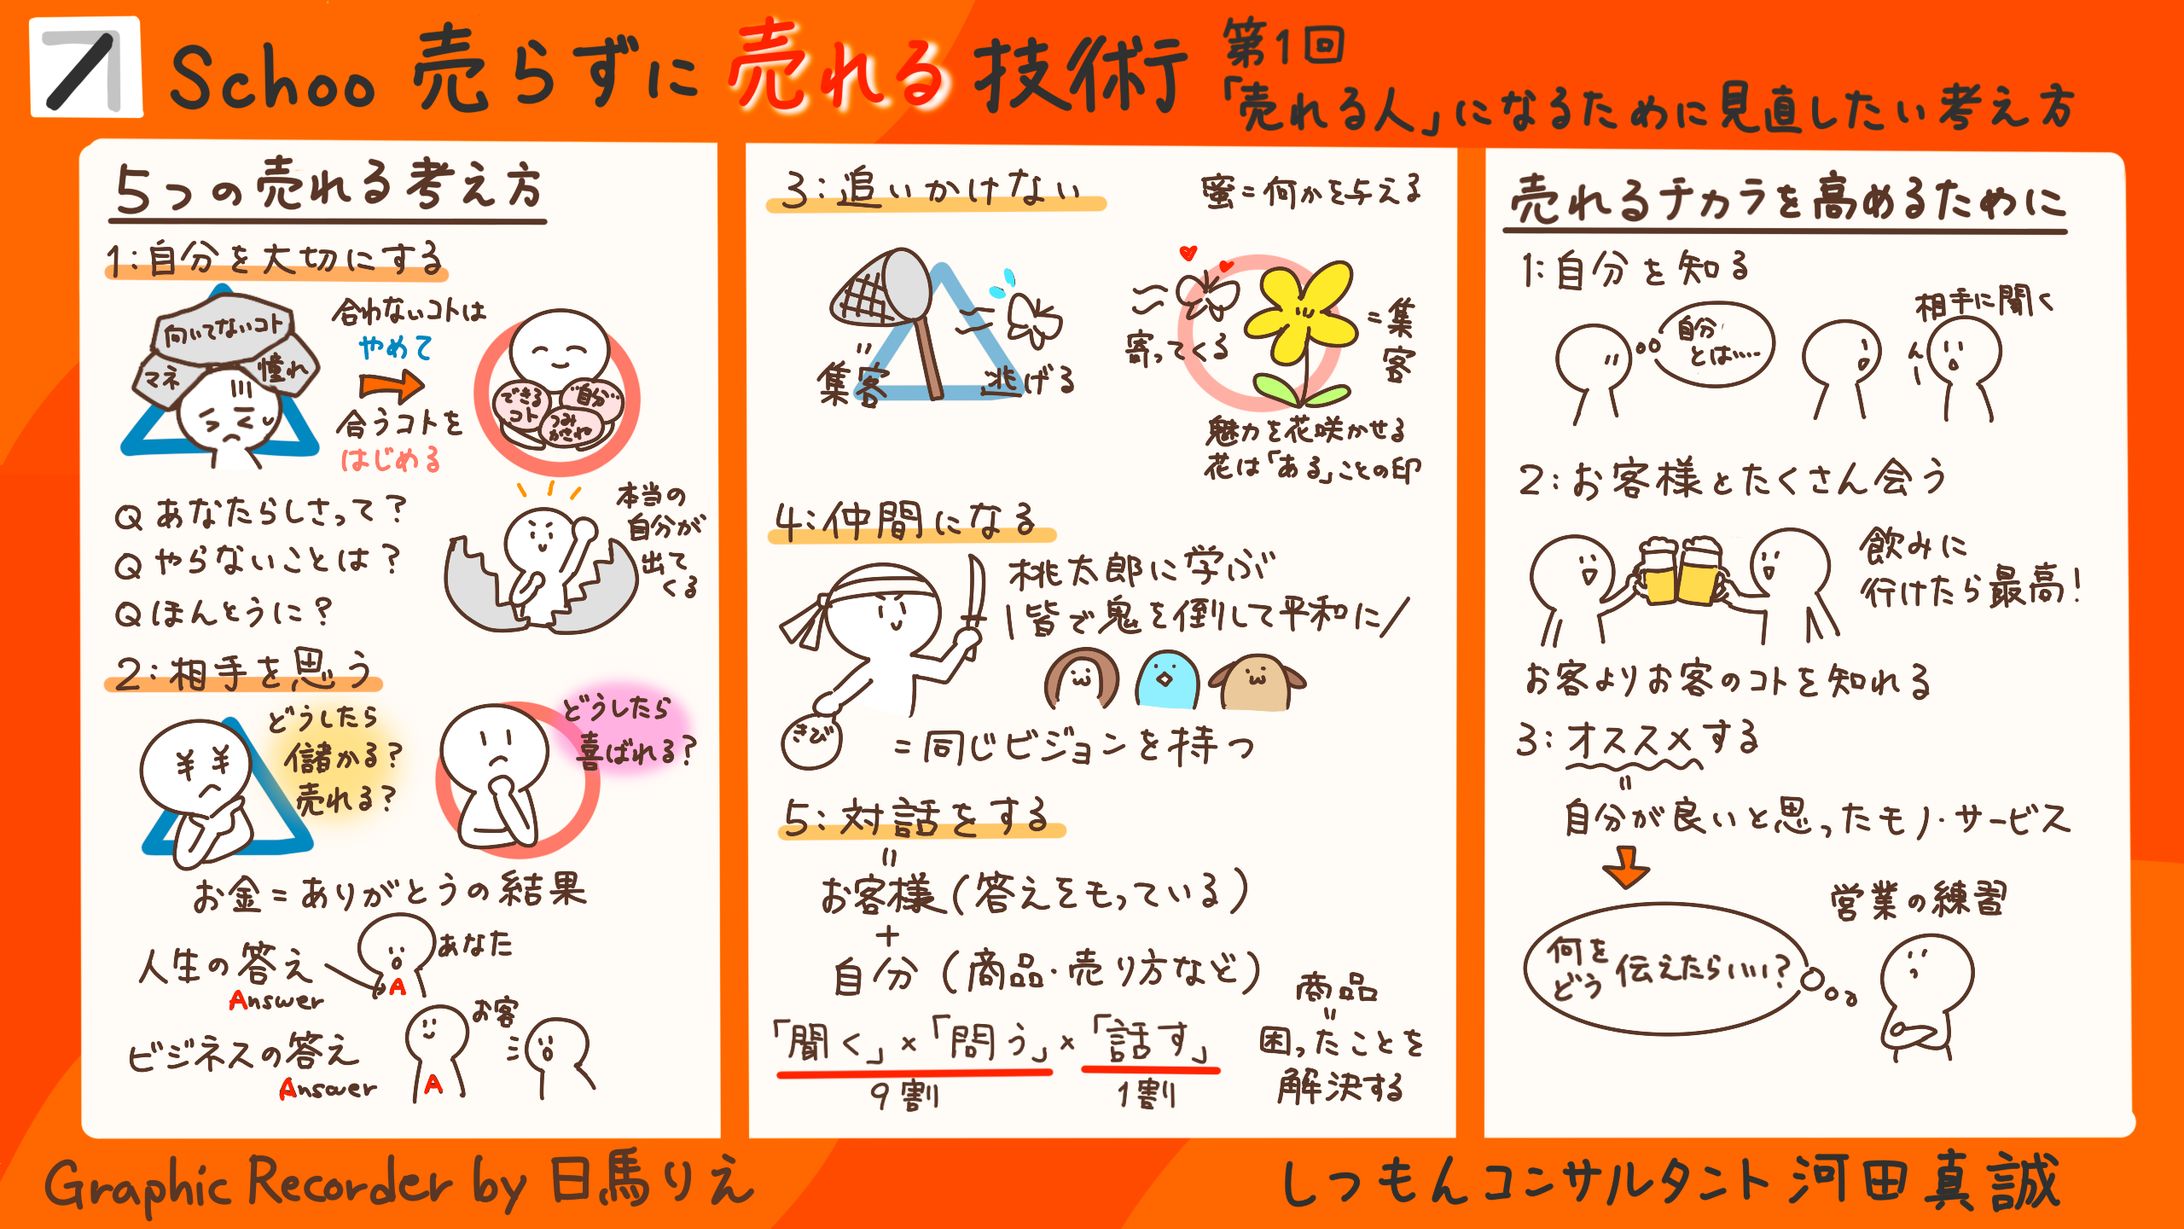 Schoo 売らずに売れる技術
第1回
「売れる人」になるために見直したい考え方
5つの売れる考え方
1:自分を大切にする
向いてないコト
マネ
憧れ
合わないコトは
やめて
合うコトを
はじめる
できる
コト
"自分"
つみ
かさね
Q あなたらしさって?
Q やらないことは?
Q ほんとうに?
本当の
自分が
出て
くる
2:相手を思う
¥ ¥
どうしたら
儲かる?
売れる?
どうしたら
喜ばれる?
お金=ありがとうの結果
人生の答え
Answer
あなた
A
ビジネスの答え
Answer
お客
A
3:追いかけない
蜜=何かを与える
=
集客
逃げる
寄ってくる
=集
客
魅力を花咲かせる
花は「ある」ことの印
4:仲間になる
桃太郎に学ぶ
\皆で鬼を倒して平和に/
きび
=同じビジョンを持つ
5:対話をする
=
お客様(答えをもっている)
+
自分(商品・売り方など)
「聞く」×「問う」×「話す」
9割
1割
商品
=
困ったことを
解決する
売れるチカラを高めるために
1:自分を知る
自分
とは....
相手に聞く
2:お客様とたくさん会う
飲みに
行けたら最高!
お客よりお客のコトを知れる
3:オススメする
=
自分が良いと思ったモノ・サービス
営業の練習
何を
どう
伝えたらいい?
Graphic Recorder by 日馬りえ
しつもんコンサルタント 河田真誠